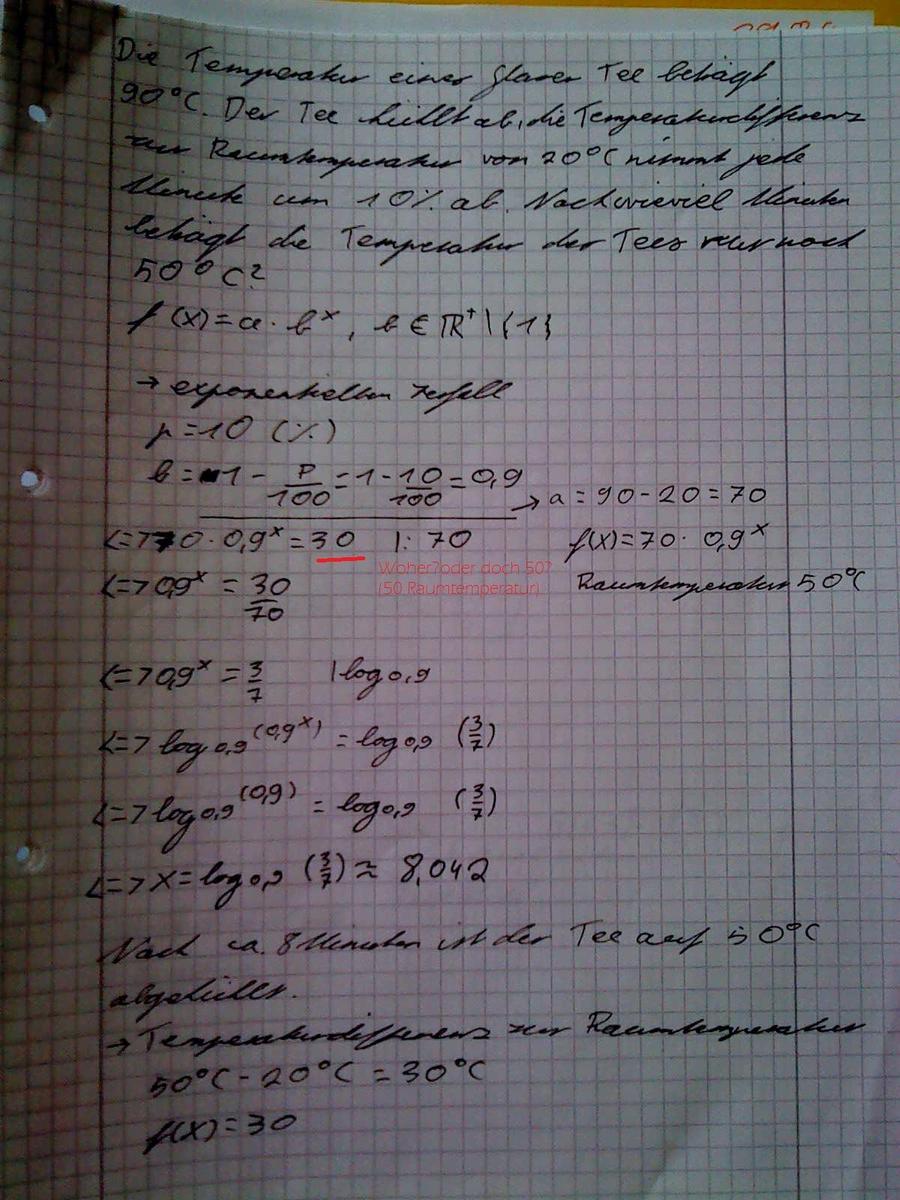 Die Temperatur eines Glases Tee beträgt
90°C. Der Tee kühlt ab, die Temperaturdifferenz
zur Raumtemperatur von 20°C nimmt jede
Minute um 10% ab. Nach wieviel Minuten
beträgt die Temperatur des Tees nur noch
50°C?
f(x) = a · b^x, b ∈ ℝ⁺\{1}
→ exponentieller Zerfall
p = 10 (%)
b = 1 - p/100 = 1 - 10/100 = 0,9
→ a = 90 - 20 = 70
<=> 70 · 0,9^x = 30 |: 70
f(x) = 70 · 0,9^x
Woher?oder doch 50?
(50 Raumtemperatur)
Raumtemperatur 50°C
<=> 0,9^x = 30/70
<=> 0,9^x = 3/7 | log 0,9
<=> log 0,9 (0,9^x) = log 0,9 (3/7)
<=> log 0,9 (0,9) = log 0,9 (3/7)
<=> x = log 0,9 (3/7) ≈ 8,042
Nach ca. 8 Minuten ist der Tee auf 50°C
abgekühlt.
→ Temperaturdifferenz zur Raumtemperatur
50°C - 20°C = 30°C
f(x) = 30